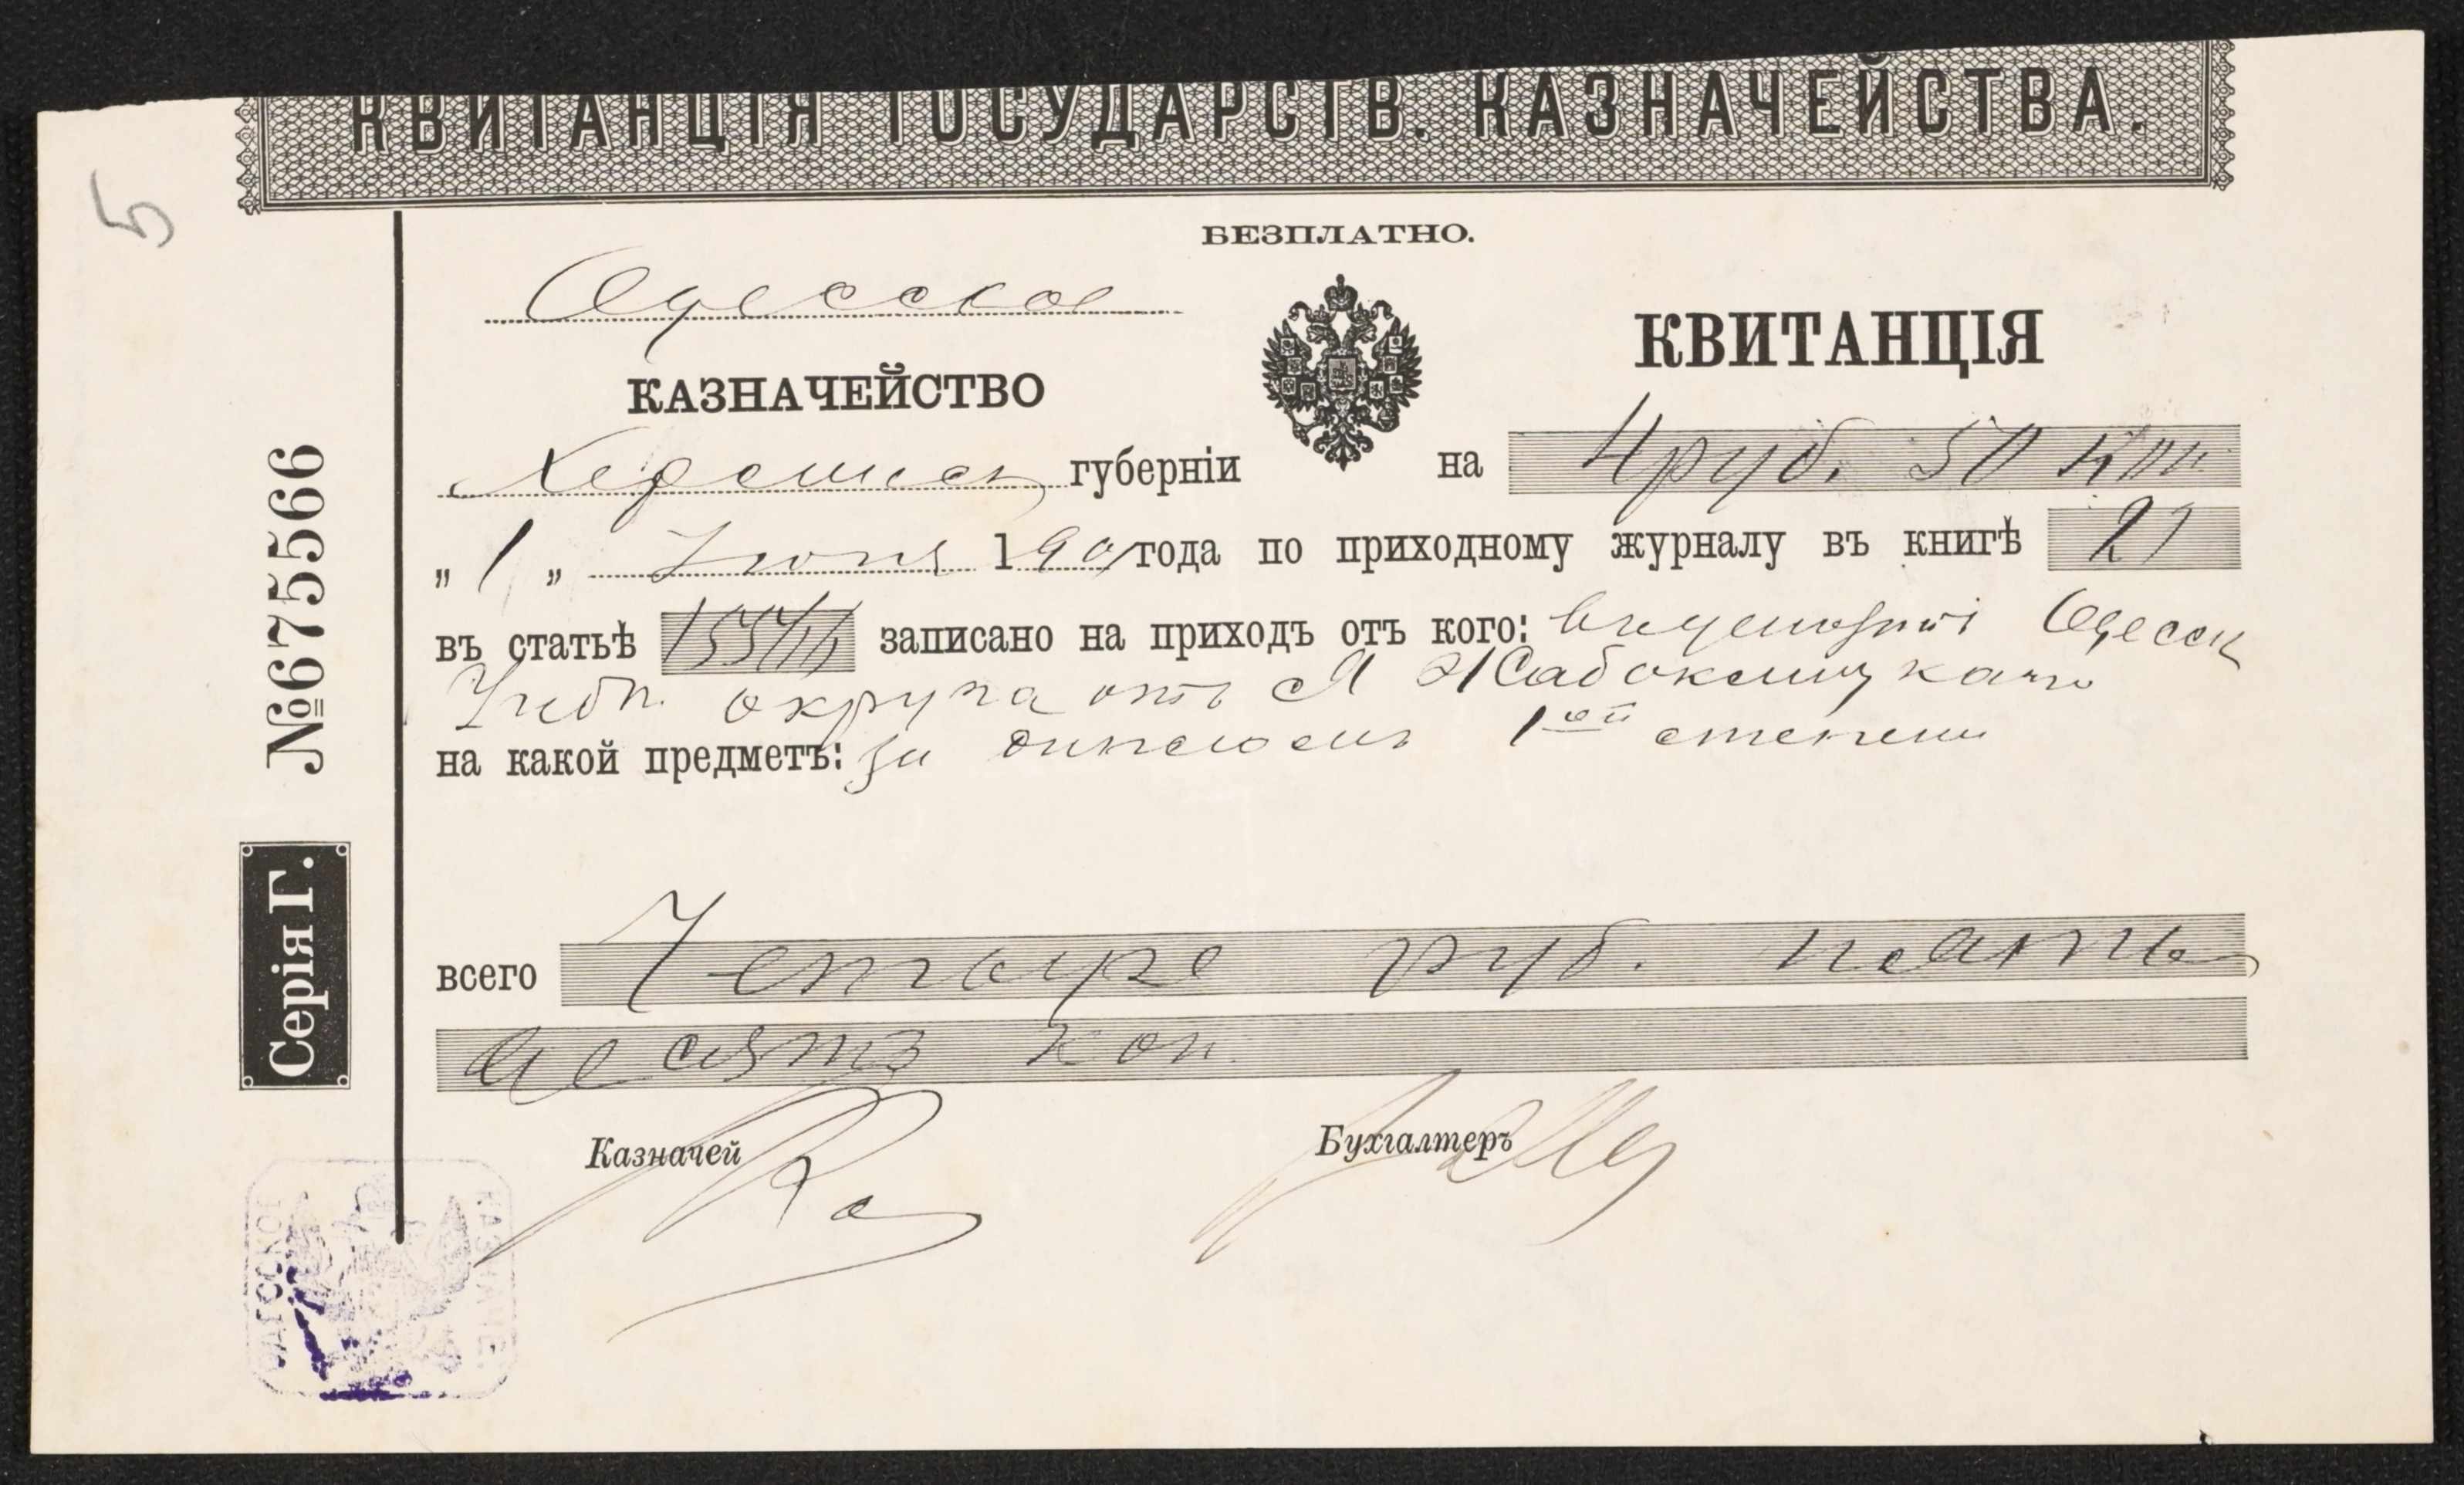 КВИТАНЦІЯ ГОСУДАРСТВ. КАЗНАЧЕЙСТВА.
5
БЕЗПЛАТНО.
Одесское
КАЗНАЧЕЙСТВО
КВИТАНЦІЯ
Херсонск губерніи
на 4 руб. 50 коп
„ 1 „ Іюня 190 года по приходному журналу въ книгѣ
въ статьѣ записано на приходъ отъ кого: Одесск
Учебн. округа отъ
на какой предметъ: за дипломъ 1ой степени
всего Четыре руб. пять
десятъ коп.
Казначей
Бухгалтеръ
№675566
Серія Г.
ОДЕССКОЕ КАЗНАЧЕ.